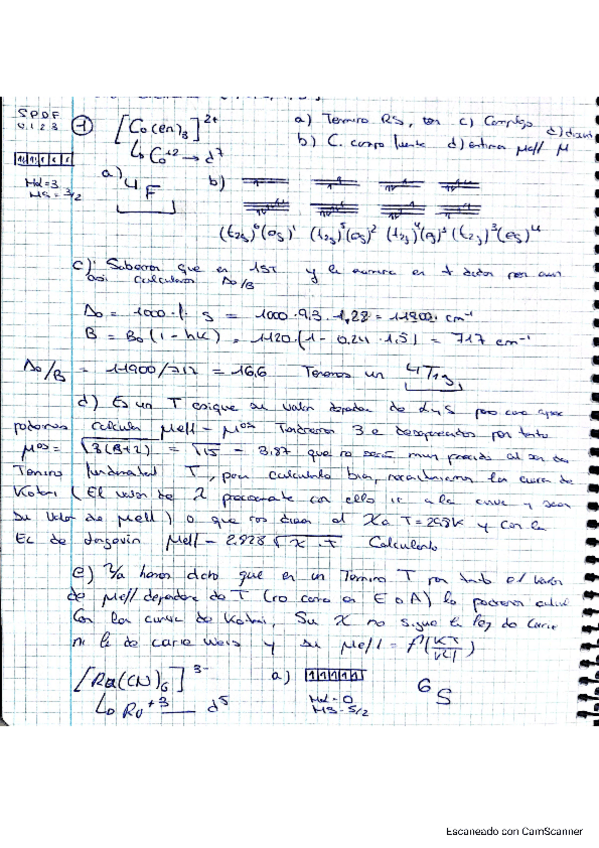 S P D F
0 1 2 3
1
[Co(en)3]2+
↳ Co+2 → d7
a) Termino RS, c) Complejo
b) C. campo fuerte d) estima μeff
ML=3
MS=3/2
a) 4F
b)
(t2g)6(eg)1 (t2g)5(eg)2 (t2g)4(eg)3 (t2g)3(eg)4
c) Sabemos que es
calculamos Δo/B
Δo = 1000·f·g = 1000·9,3·1,28 = 11900 cm-1
B = Bo(1-hk) = 1120·(1-0,24·1,5) = 717 cm-1
Δo/B = 11900/717 = 16,6 Tenemos un 4T1g
d) Es un T asique su valor depender de L y S pero
podemos calcular μeff = μos Tendremos 3 e- desapareados por tanto
μos = √3(3+2) = √15 = 3,87 que no será muy parecido al ser de
Termino fundamental T, para calcularlo bien, necesitaríamos la curva de
Kotani (El valor de λ con ello ir a la curva y
su valor de μeff) o que nos dieran el X a T=298K y con la
Ec de Langevin μeff = 2,828√X·T Calcularlo
e) Ya hemos dicho que es un Termino T por tanto el valor
de μeff depende de T (no como en E o A) lo podemos
Con la curva de Kotani, Su X no sigue la ley de Curie
ni la de Curie Weiss y su μeff = f(KT/|λ|)
[Ru(CN)6]3-
↳ Ru+3 — d5
a)
ML=0
MS=5/2
6S
Escaneado con CamScanner